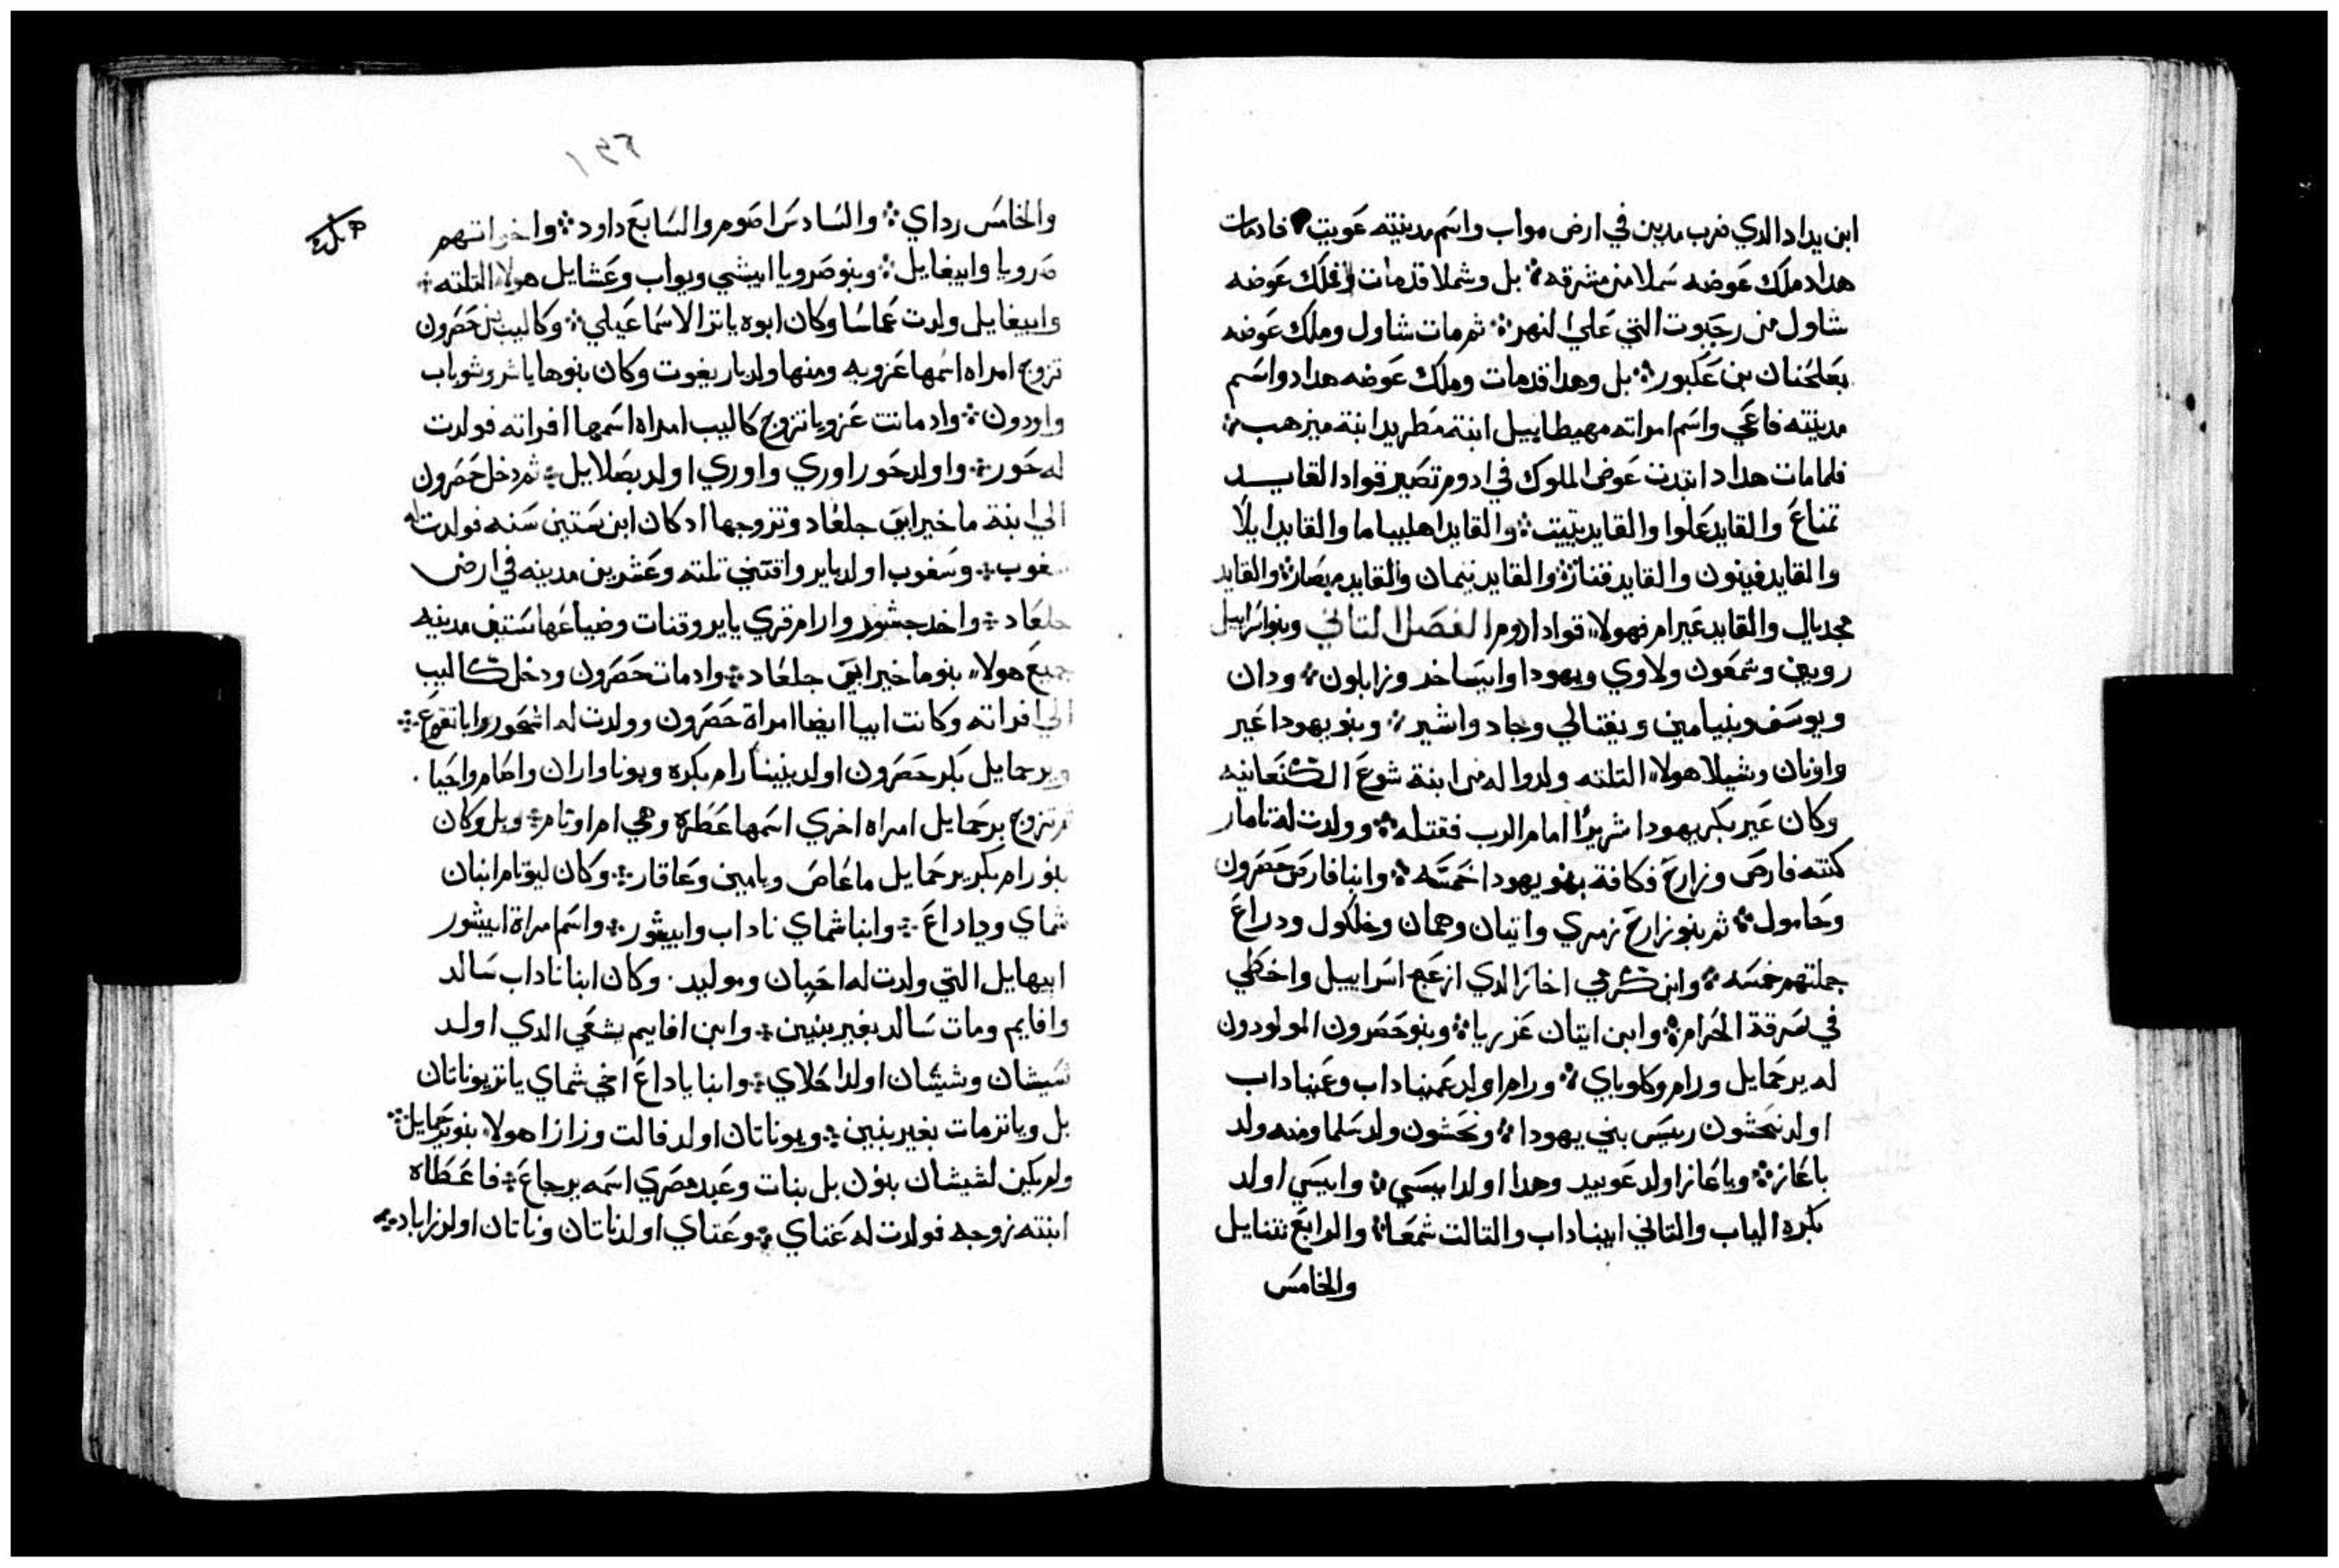 ابن بداد الدي ضرب مدين في ارض مواب واسم مدينته عويت فادمات
هداد ملك عوضه سملا من مشرقه بل وشملا قدمات وملك عوضه
شاول من رحبوت التي علي النهر ثم مات شاول وملك عوضه
بعلحنان بن عكبور بل وهدا قدمات وملك عوضه هداد واسم
مدينته فاعي واسم امراته مهيطابيل ابنة مطريد ابنة ميزهب
فلما مات هداد ابتدت عوض الملوك في ادوم تصير قواد القايد
تمناع والقايد علوا والقايد يتيت والقايد اهليباما والقايد ايلا
والقايد فينون والقايد قناز والقايد تيمان والقايد مبصار والقايد
مجديال والقايد عيرام فهولاء قواد ادوم الفصل التاني وبنو اسراييل
روبين وشمعون ولاوي ويهودا وايساخر وزابلون ودان
ويوسف وبنيامين ونفتالي وجاد واشير وبنو يهودا عير
واونان وشيلا هولاء التلته ولدوا له من ابنة شوع الكنعانيه
وكان عير بكر يهودا شريرا امام الرب فقتله وولدت له تامار
كنته فارص وزارح فكافة بنو يهودا خمسه وابنا فارص حصرون
وحامول ثم بنو زارح زمري واتيان وهمان وخلكول ودراع
جملتهم خمسه وابن كرمي اخاز الدي ازعج اسراييل واخطي
في سرقة الحرام وابن ايتان عزريا وبنو حصرون المولودون
له يرحمايل ورام وكلوباي ورام اولد عميناداب وعميناداب
اولد نحشون رييس بني يهودا ونحشون ولد سلما ومنه ولد
باعاز وباعاز اولد عوبيد وهدا اولد ايسي وايسي اولد
بكره الياب والتاني ابيناداب والتالت شمعا والرابع نتنايل
والخامس
١٩٦
والخامس رداي والسادس اصوم والسابع داود واخواتهم
صرويا وابيغايل وبنو صرويا ابيشي ويواب وعشايل هولاء التلته
وابيغايل ولدت عماسا وكان ابوه ياتر الاسماعيلي وكاليب بن حصرون
تزوج امراه اسمها عزوبه ومنها ولد ياريغوت وكان بنوها ياشر وشوباب
واردون وادماتت عزوبا تزوج كاليب امراه اسمها افراته فولدت
له حور واولد حور اوري واوري اولد بصلاييل ثم دخل حصرون
الي ابنة ماخير ابي جلعاد وتزوجها ادكان ابن ستين سنه فولدت له
سغوب وسغوب اولد ياير واقتني تلته وعشرين مدينه في ارض
جلعاد واخد جشور وارام قري ياير وقنات وضياعها ستين مدينه
جميع هولاء بنو ماخير ابي جلعاد وادمات حصرون ودخل كاليب
الي افراته وكانت ابيا ايضا امراة حصرون وولدت له اشحور ابا تقوع
ويرحمايل بكر حصرون اولد بنينا رام بكره وبونا واران واصام واحيا
ثم تزوج يرحمايل امراه اخري اسمها عطره وهي ام اوتام وبل وكان
بنو رام بكر يرحمايل ماعاص ويامين وعاقار وكان ليوتام ابنان
شماي وياداع وابنا شماي ناداب وابيشور واسم امراة ابيشور
ابيهايل التي ولدت له احبان وموليد وكان ابنا ناداب سالد
وافايم ومات سالد بغير بنين وابن افاييم يشعي الدي اولد
شيشان وشيشان اولد احلاي وابنا ياداع اخي شماي ياتر يوناتان
بل وياتر مات بغير بنين ويوناتان اولد فالت وزازا هولاء بنو يرحمايل
ولم يكن لشيشان بنون بل بنات وعبد مصري اسمه يرجاع فاعطاه
ابنته زوجه فولدت له عتاي وعتاي اولد ناتان وناتان اولد زاباد